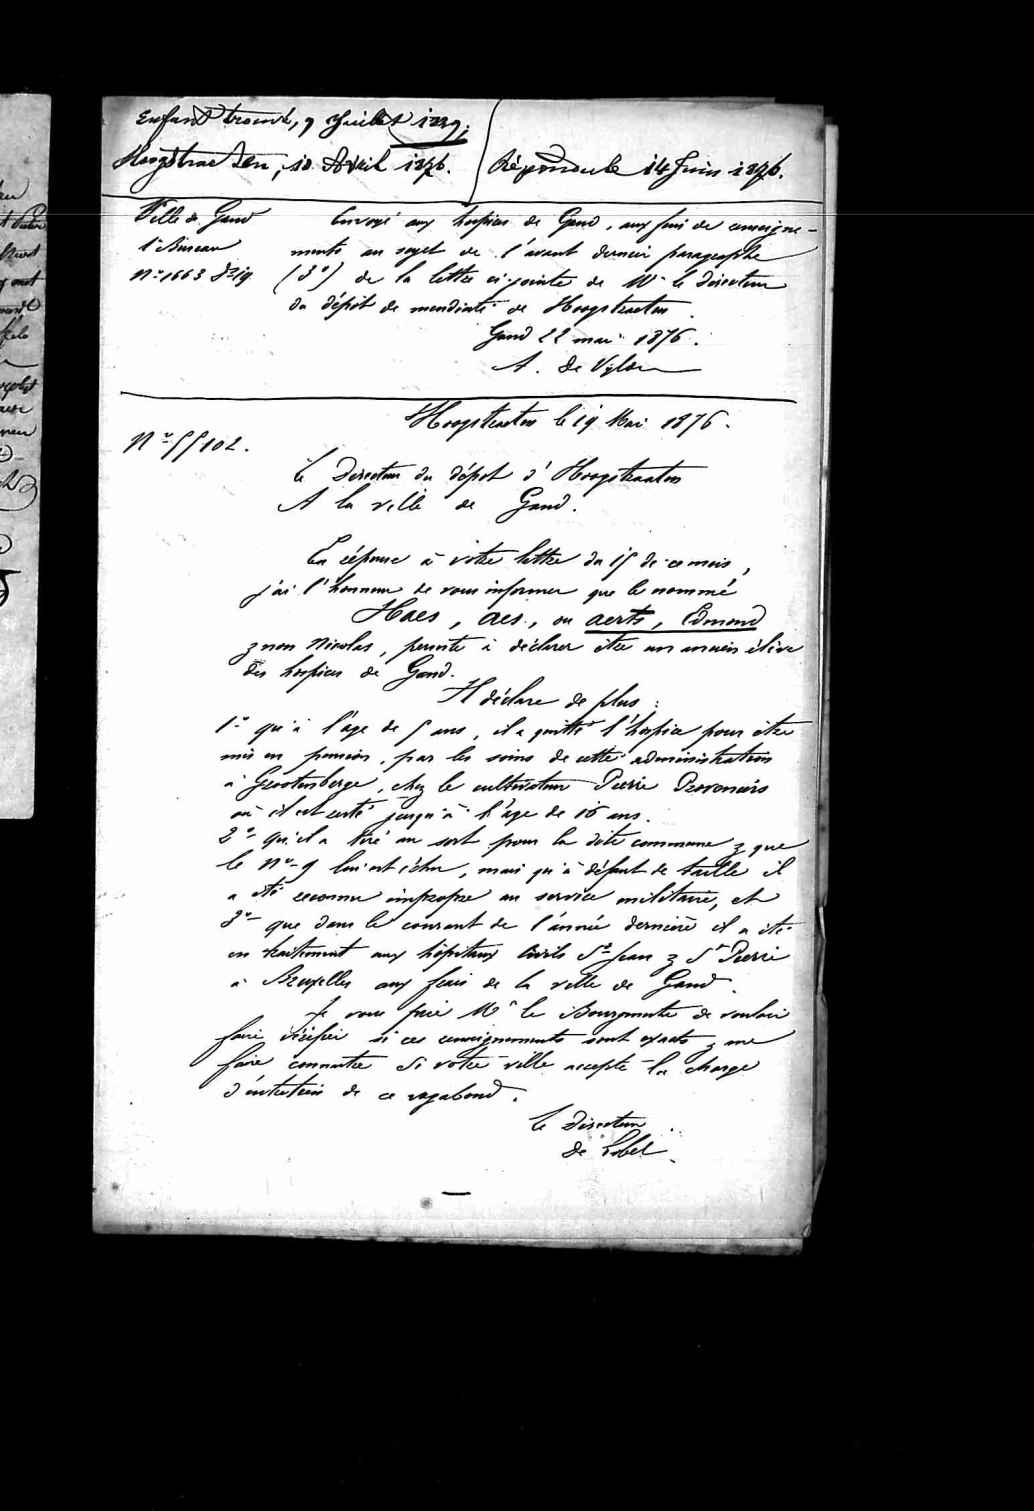 Enfant trouvé, 9 Juillet 1829.
Hoogstraeten, 10 Avril 1876.
Répondu le 14 Juin 1876.
Ville de Gand
1r Bureau
No 1663 Don 19
Envoyé aux hospices de Gand, aux fins de renseigne-
ments au sujet de l'avant dernier paragraphe
(3o) de la lettre ci-jointe de Mr le directeur
du dépôt de mendicité de Hoogstraeten.
Gand 22 mai 1876.
A. de Vylder
Hoogstraeten le 19 Mai 1876.
No 55102.
Le Directeur du dépôt d'Hoogstraeten
A la ville de Gand.
En réponse à votre lettre du 15 de ce mois,
j'ai l'honneur de vous informer que le nommé
Haes, Aes, ou Aerts, Edmond
& non Nicolas, persiste à déclarer être un ancien élève
des hospices de Gand.
Il déclare de plus :
1o qu'à l'âge de 5 ans, il a quitté l'hospice pour être
mis en pension, par les soins de cette administration
à Grootenberge, chez le cultivateur Pierre
où il est resté jusqu'à l'âge de 16 ans.
2o qu'il a tiré au sort pour la dite commune & que
le No 9 lui est échu, mais qu'à défaut de taille il
a été reconnu impropre au service militaire, et
3o que dans le courant de l'année dernière il a été
en traitement aux hôpitaux Civils St Jean & St Pierre
à Bruxelles aux frais de la ville de Gand.
Je vous prie Mr le Bourgmestre de vouloir
faire vérifier si ces renseignements sont exacts & me
faire connaitre si votre ville accepte la charge
d'entretien de ce vagabond.
Le Directeur
de Lobel